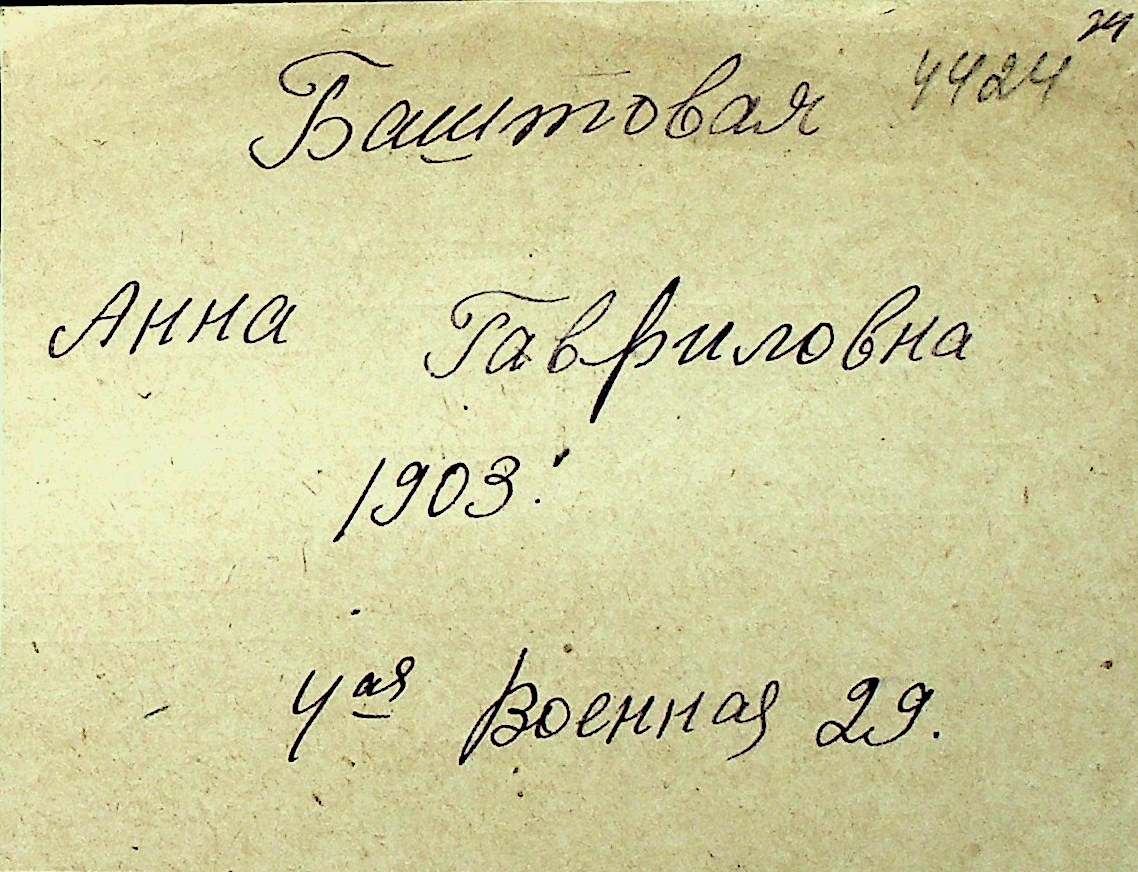 24
Баштовая 4424
Анна Гавриловна
1903.
4ая Военная 29.